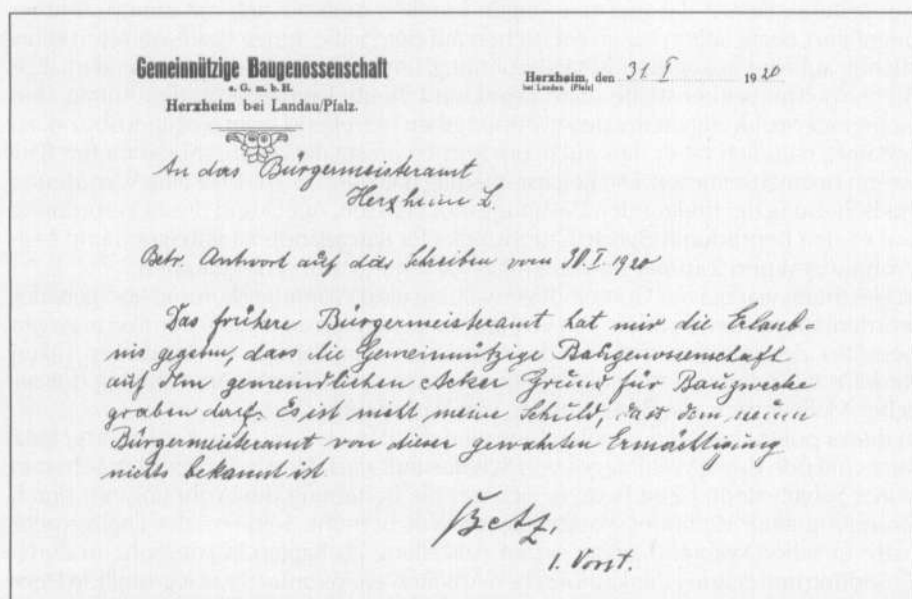 Gemeinnützige Baugenossenschaft
e. G. m. b. H.
Herxheim bei Landau/Pfalz.
Herxheim, den 31 I 1920
bei Landau (Pfalz)
An das Bürgermeisteramt
Herxheim L.
Betr. Antwort auf das Schreiben vom 30.I.1920
Das frühere Bürgermeisteramt hat mir die Erlaub=
nis gegeben, dass die Gemeinnützige Baugenossenschaft
auf dem gemeindlichen Acker Grund für Bauzwecke
graben darf. Es ist nicht meine Schuld, dass dem neuen
Bürgermeisteramt von dieser gewährten Ermächtigung
nichts bekannt ist
Betz,
1. Vorst.